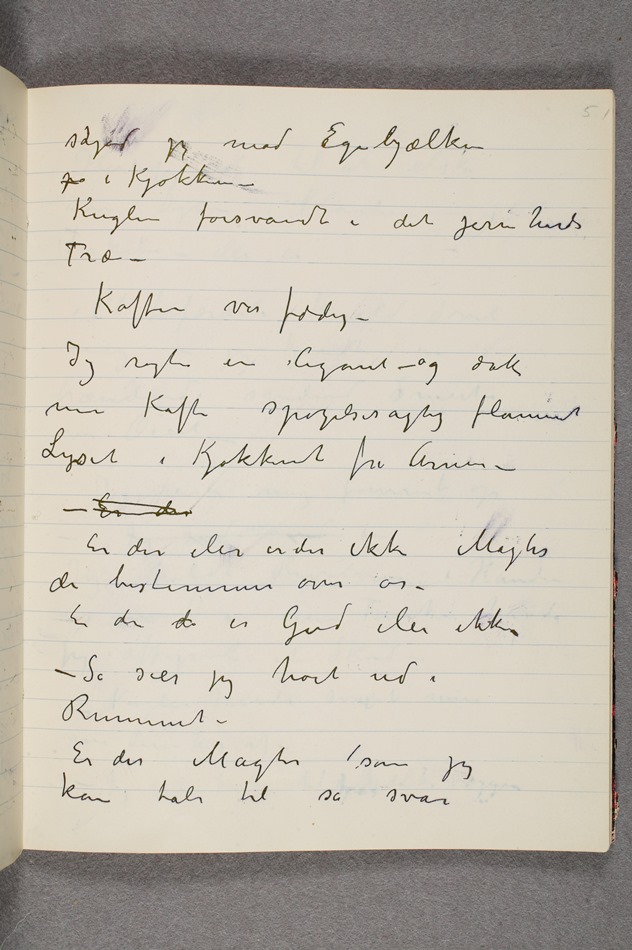 jeg mod Egebjælken
på i Kjøkken–
Kuglen forsvandt i det jernhårde
Træ –
Kaffen var færdig –
Jeg røgte en Cigaret – og drak
min Kaffe spøgelsesagtig flammet
Lyset i Kjøkkenet fra Arnen –
– Er der
Er der eller er der ikke Magter
der bestemmer over os –
Er der da en Gud eller ikke
– Så sier jeg høit ud i
Rummet –
Er der Magter som jeg
kan tale til så svar